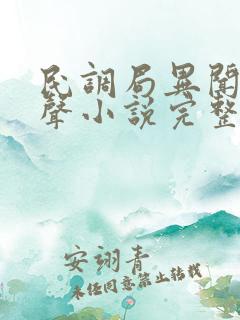 民調局異聞
聲小說完整
安翊青
未經同意禁止轉載